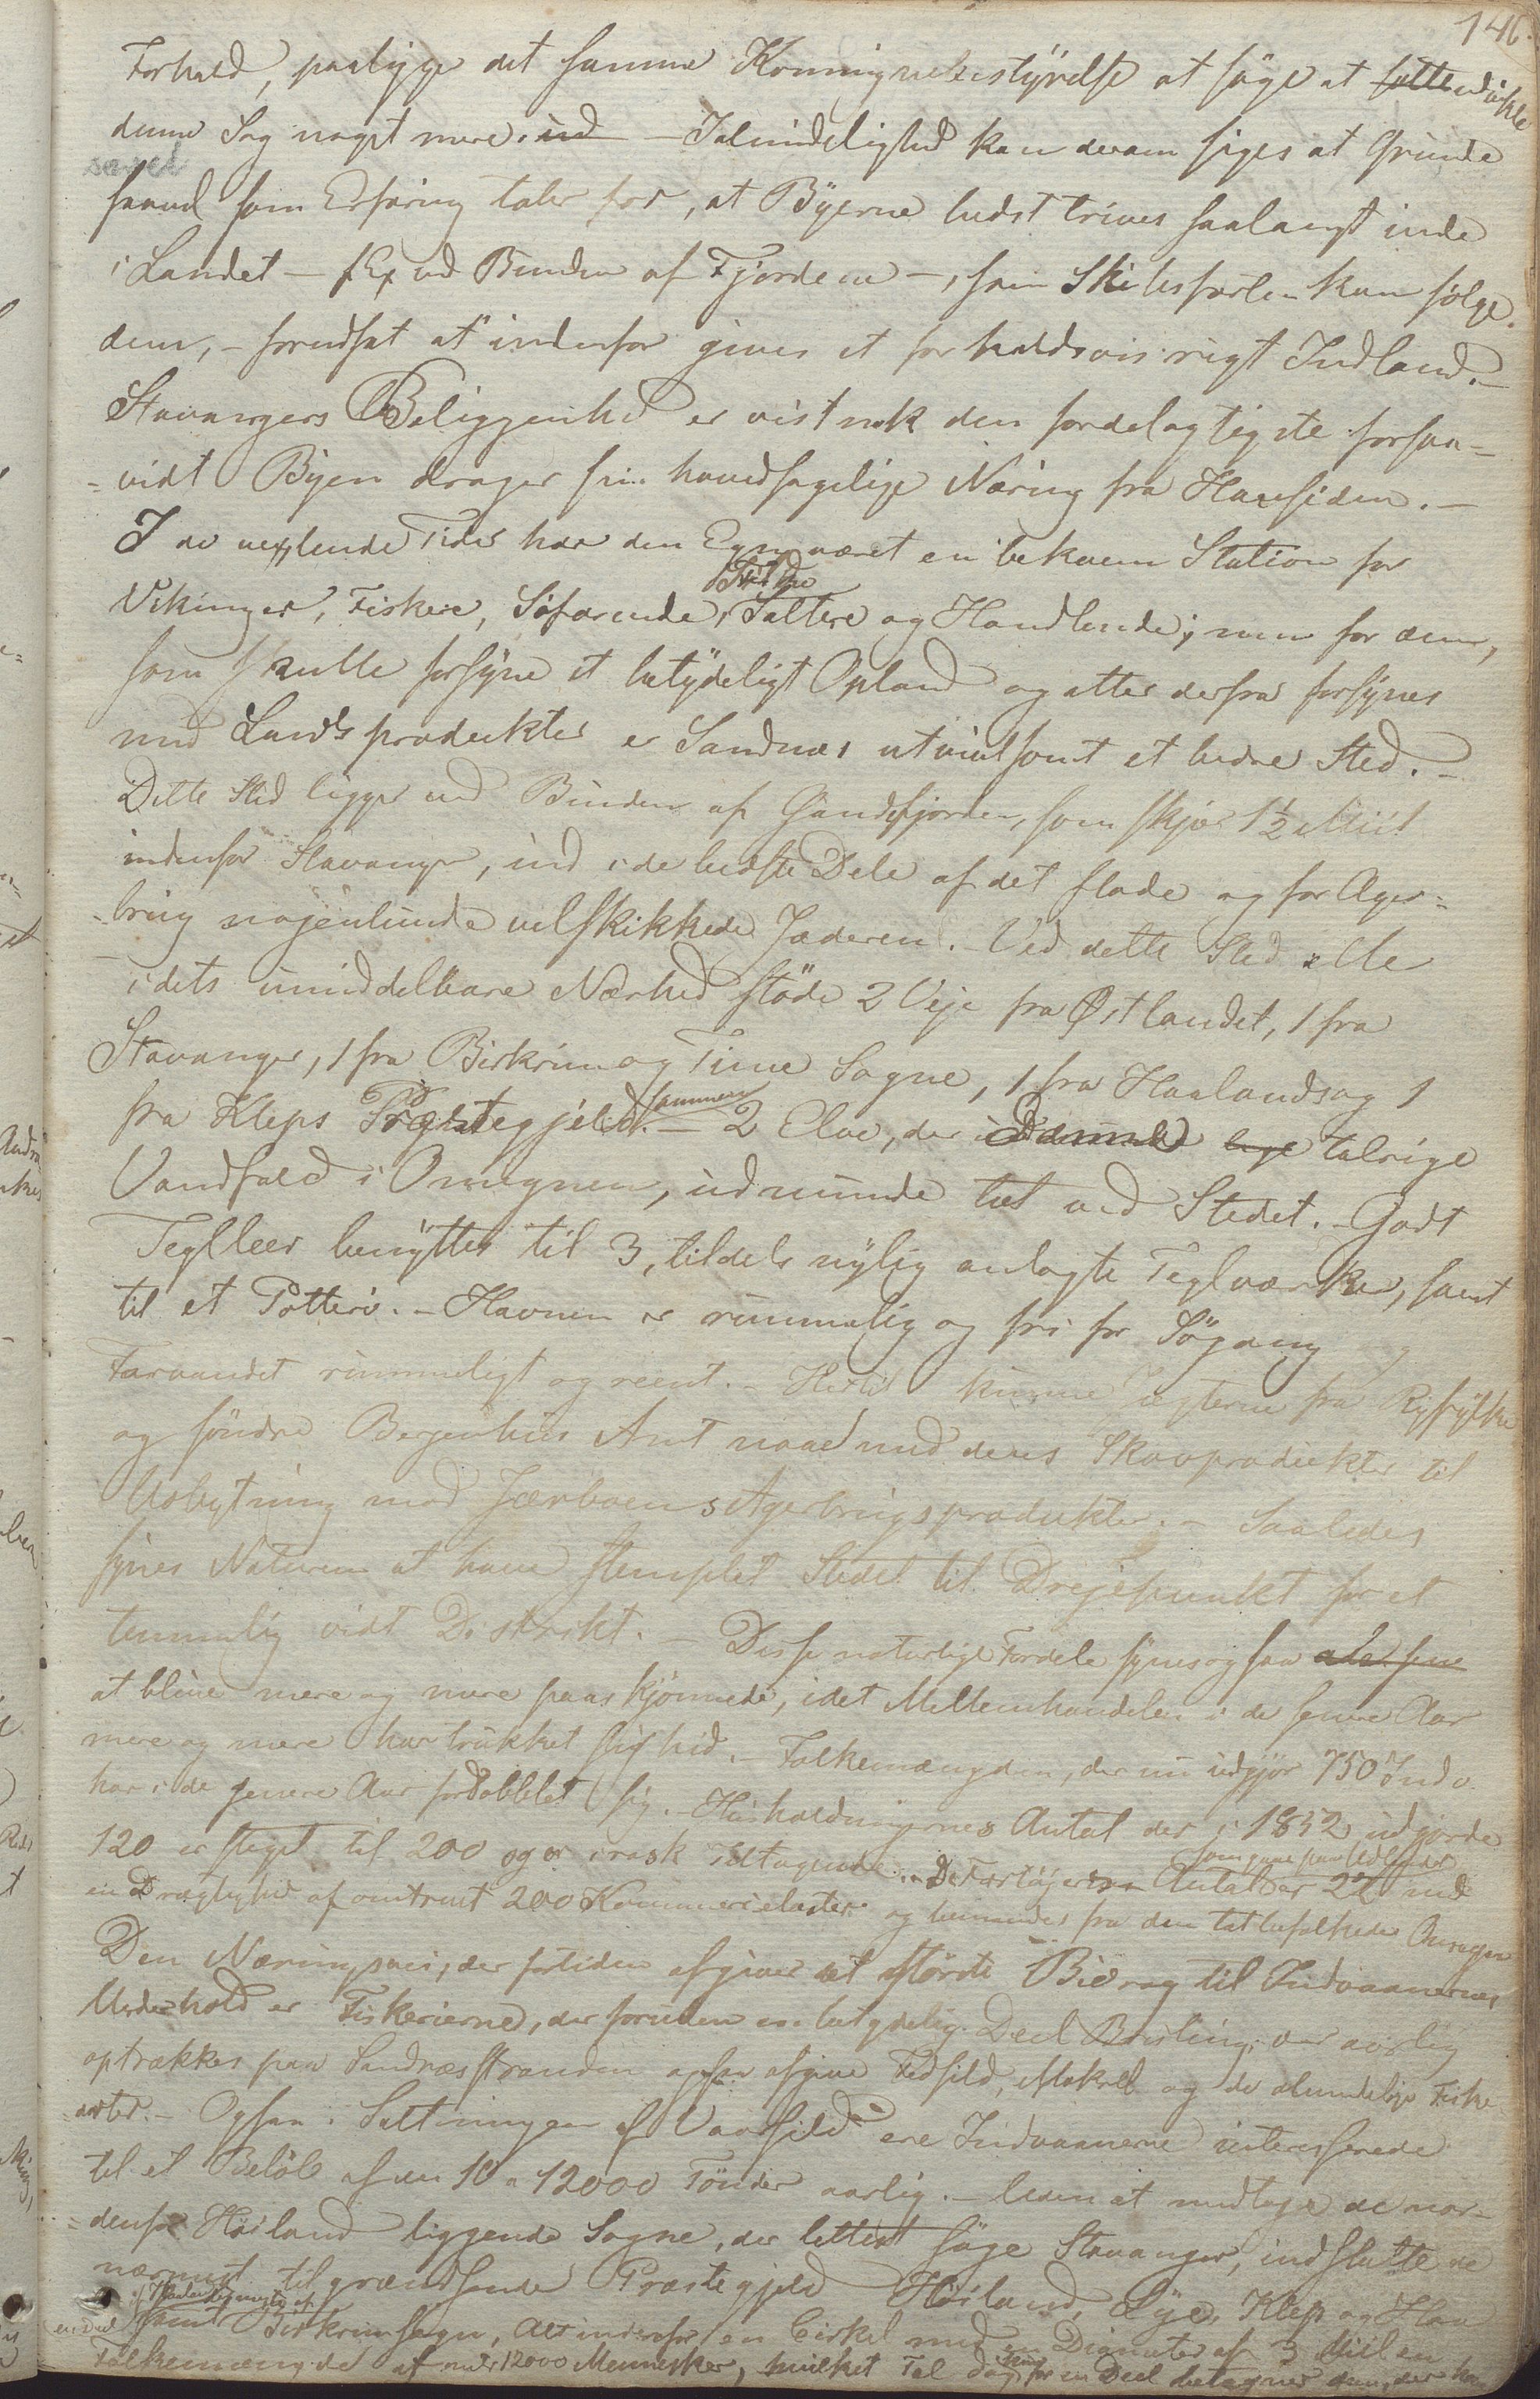 146.
Forhold, paaligge det samme Kommunebestÿrelse at søge at sætte udvikle
denne Sag noget mere. ud – Ialmindelighed kan derom siges at Grunde
savel
saavel som Erfaring taler for, at Bÿerne bedst trives saalangt inde
i Landet – f Ex ved Bunden af Fjordene –, som Skibsfarten kan følge
dem, – forudsat at indenfor gives et forholdsvis rigt Indland. –
Stavangers Beliggenhed er vistnok den fordelagtigste forsaa-
-vidt Bÿen drager sin hovedsagelige Næring fra Havsiden. –
I de vexlende Tider har den Egn været en bekvem Station for
Vikinger, Fiskere, Söfarende, Saltere og Handlende; men for dem,
som skulle forsÿne et betÿdeligt Opland og atter derfra forsÿnes
med Landsprodukter er Sandnæs utvivlsomt et bedre Sted. –
Dette Sted ligger ved Bunden af Gandsfjorden, som skjær 1½ Miil
indenfor Stavanger, ind i de bedste Dele af det flade og for Ager-
-brug nogenlunde velskikkede Jæderen. – Ved dette Sted eller
i dets umiddelbare Nærhed støde 2 Veje fra Østlandet, 1 fra
Stavanger, 1 fra Birkrim og Time Sogne, 1 fra Haaland og 1
fra Kleps Præstegjeld. – 2 Elve, der danne talrige
Vandfald i Omegnen, udmunde tæt ved Stedet. – Godt
Teglleer benÿttes til 3, tildels nÿlig anlagte Teglværker, samt
til et Potteri. – Havnen er rummelig og fri for Søgang
Farvandet rummeligt og reent. – Hertil kunne Jægterne fra Rÿfÿlke
og söndre Bergenhus Amt naae med deres Skovprodukter til
Udbytning mod Jærboens Agerbrugsprodukter. – Saaledes
synes Naturen at have stemplet Stedet til Drejepunkt for et
temmelig vidt Distrikt. – Disse naturlige Fordele synes ogsaa
at blive mere og mere paaskjönnede, idet Mellemhandelen i de senere Aar
mere og mere har trukket sig hid. – Folkemængden, der nu udgjør 750 Indv.
har i de senere Aar fordobblet sig. – Huusholdningernes Antal der i 1852 udgjorde
120 er steget til 200 og er i rask Tiltagende. – De Fartøjers Antal som gaae paa Udlandet er 22 med
en Drægtighed af omtrent 200 Kommercelæster og bemandes fra den tætbefolkede Omegn
Den Næringsvei, der fortiden afgiver det störste Bidrag til Indvaanernes
Underhold er Fiskerierne, der foruden en betydelig Deel Brisling, der aarlig
optrækkes paa Sandnæsstranden ogsaa afgive Fedsild, Makrel og de almindelige Fiske
-arter. – Ogsaa i Saltningen af Vaarsild ere Indvaanerne interesserede
til et Beløb af en 10 a 12000 Tönder aarlig. – Uden at medtage de nor-
-denfor Høiland liggende Sogne, der lettest søge Stavanger, indslutte de
nærmest tilgrændsende Præstegjeld Høiland, Lÿe, Klep og Haa
samt en Deel af Birkrimsogn, Alt indenfor en Cirkel med en Diameter af 3 Miil en
Folkemængde af over 12000 Mennesker, hvilket Tal dog for en Deel betegner dem, der